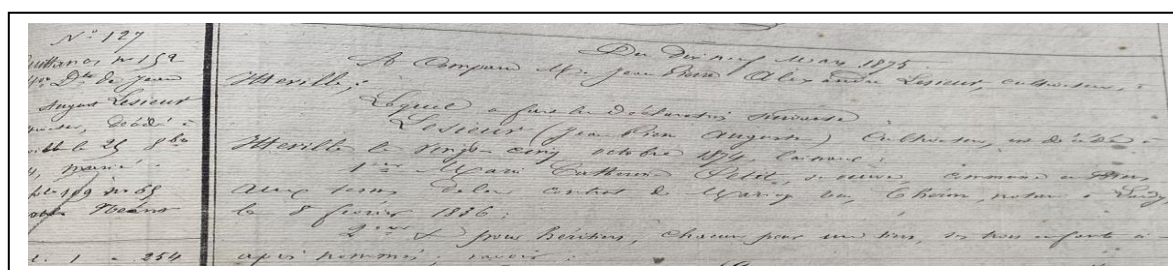 N° 127
Quittance, n° 152
Dte de Jean
August Lesieur
décédé à
le 25 8bre
marié
n° 65
Néant
1 254
Du Dix neuf Mars 1875
A Comparu Mr Jean Pierre Alexandre Lesieur, cultivateur, à
Itteville;
Lequel a fait la Déclaration suivante
Lesieur (Jean Pierre Auguste) Cultivateur, est décédé à
Itteville le vingt cinq octobre 1874, laissant:
1ent Marie Catherine Petit, sa veuve, commune en biens,
aux termes de son contrat de Mariage, notaire à
le 8 février 1836;
2ent & pour héritiers, chacun pour un tiers, ses trois enfants ci-
après nommés, savoir: